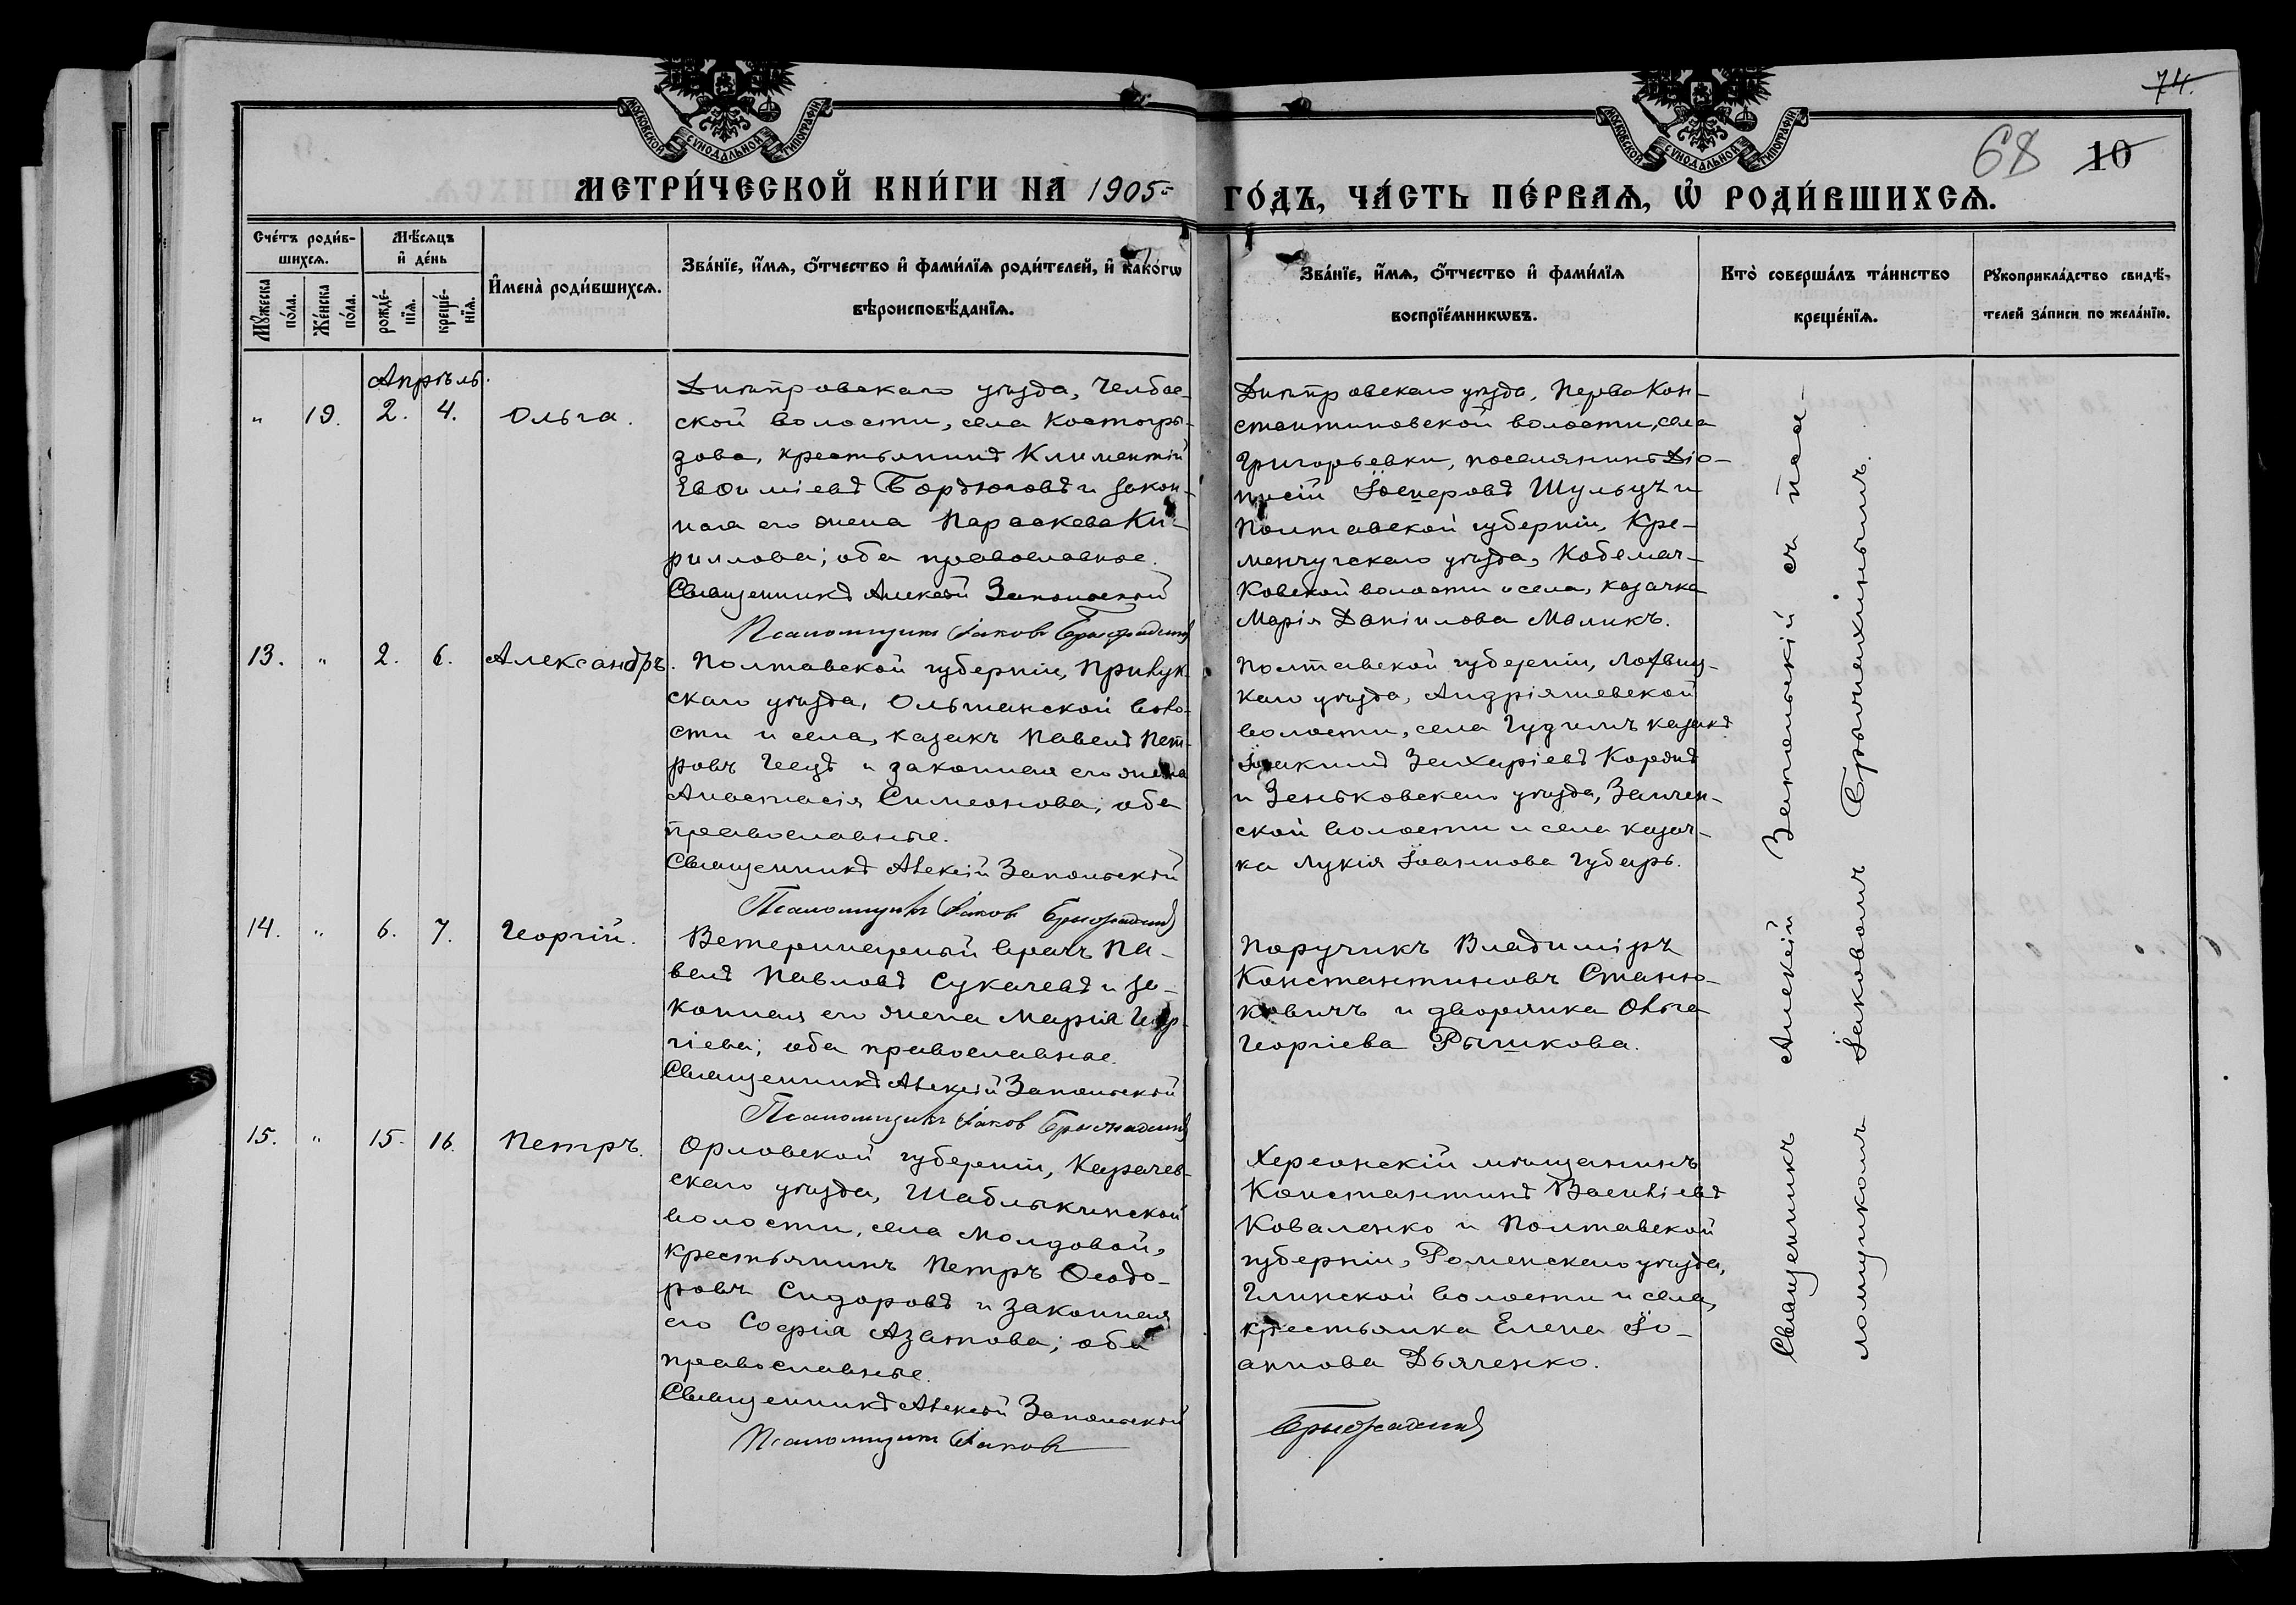 74.
68 10
МОСКОВСКОЙ СУНОДАЛЬНОЙ ТИПОГРАФІИ
МОСКОВСКОЙ СУНОДАЛЬНОЙ ТИПОГРАФІИ
МЕТРИ́ЧЕСКОЙ КНИ́ГИ НА 1905
ГО́ДЪ, ЧА́СТЬ ПЕ́РВАѦ, Ѿ РОДИ́ВШИХСѦ.
Сче́тъ роди́в-
шихсѧ.
Мꙋ́жеска
по́ла.
Же́нска
по́ла.
Мѣ́сѧцъ
и҆ де́нь
рожде́-
нїѧ.
креще́-
нїѧ.
И҆мена̀ роди́вшихсѧ.
Зва́нїе, и҆́мѧ, ѻ҆́тчество и҆ фами́лїѧ роди́телей, и҆ како́гѡ
вѣроисповѣ́данїѧ.
Зва́нїе, и҆́мѧ, ѻ҆́тчество и҆ фами́лїѧ
воспрїе́мникѡвъ.
Кто̀ соверша́лъ та́инство
креще́нїѧ.
Рꙋкоприкла́дство свидѣ́-
телей за́писи по жела́нїю.
Апрѣль.
" 19. 2. 4. Ольга.
Днѣпровскаго уѣзда, Челбас-
ской волости, села Костогры-
зова, крестьянинъ Климентій
Евѳиміевъ Бордюговъ и закон-
ная его жена Параскева Ки-
риллова; оба православные.
Священникъ Алексѣй Запольскій
Псаломщикъ Іаковъ
Днѣпровскаго уѣзда, Перво Кон-
стантиновской волости, села
Григорьевки, поселянинъ Діо-
нисій Іосиеровъ Шульцъ и
Полтавской губерніи, Кре-
менчугскаго уѣзда,
ковской волости и села, казачка
Марія Даніилова Маликъ.
13. " 2. 6. Александръ.
Полтавской губерніи, Прилук-
скаго уѣзда, Ольшанской воло-
сти и села, казакъ Павелъ Пет-
ровъ Геецъ и законная его жена
Анастасія Симеонова; оба
православные.
Священникъ Алексій Запольскій
Псаломщикъ Іаковъ
Полтавской губерніи, Лохвиц-
каго уѣзда, Андріяшевской
волости, села Гудимъ казакъ
Іоакимъ Захаріевъ Коржъ
и Зеньковскаго уѣзда,
ской волости и села казач-
ка Лукія Іоаннова Губарь.
14. " 6. 7. Георгій.
Ветеринарный врачъ Па-
велъ Павловъ Сукачевъ и за-
конная его жена Марія Геор-
гіева; оба православные.
Священникъ Алексій Запольскій
Псаломщикъ Іаковъ
Поручикъ Владиміръ
Константиновъ Станю-
ковичъ и дворянка Ольга
Георгіева Рышкова.
15. " 15. 16. Петръ.
Орловской губерніи, Карачев-
скаго уѣзда, Шаблыкинской
волости, села Молдовой,
крестьянинъ Петръ Ѳеодо-
ровъ Сидоровъ и законная
его Софія Агатова; оба
православные.
Священникъ Алексѣй Запольскій
Псаломщикъ Іаковъ
Херсонскій мѣщанинъ
Константинъ Василіевъ
Коваленко и Полтавской
губерніи, Роменскаго уѣзда,
Глинской волости и села,
крестьянка Елена Іо-
аннова Дьяченко.
Священникъ Алексій Запольскій съ псал-
ломщикомъ Іаковомъ